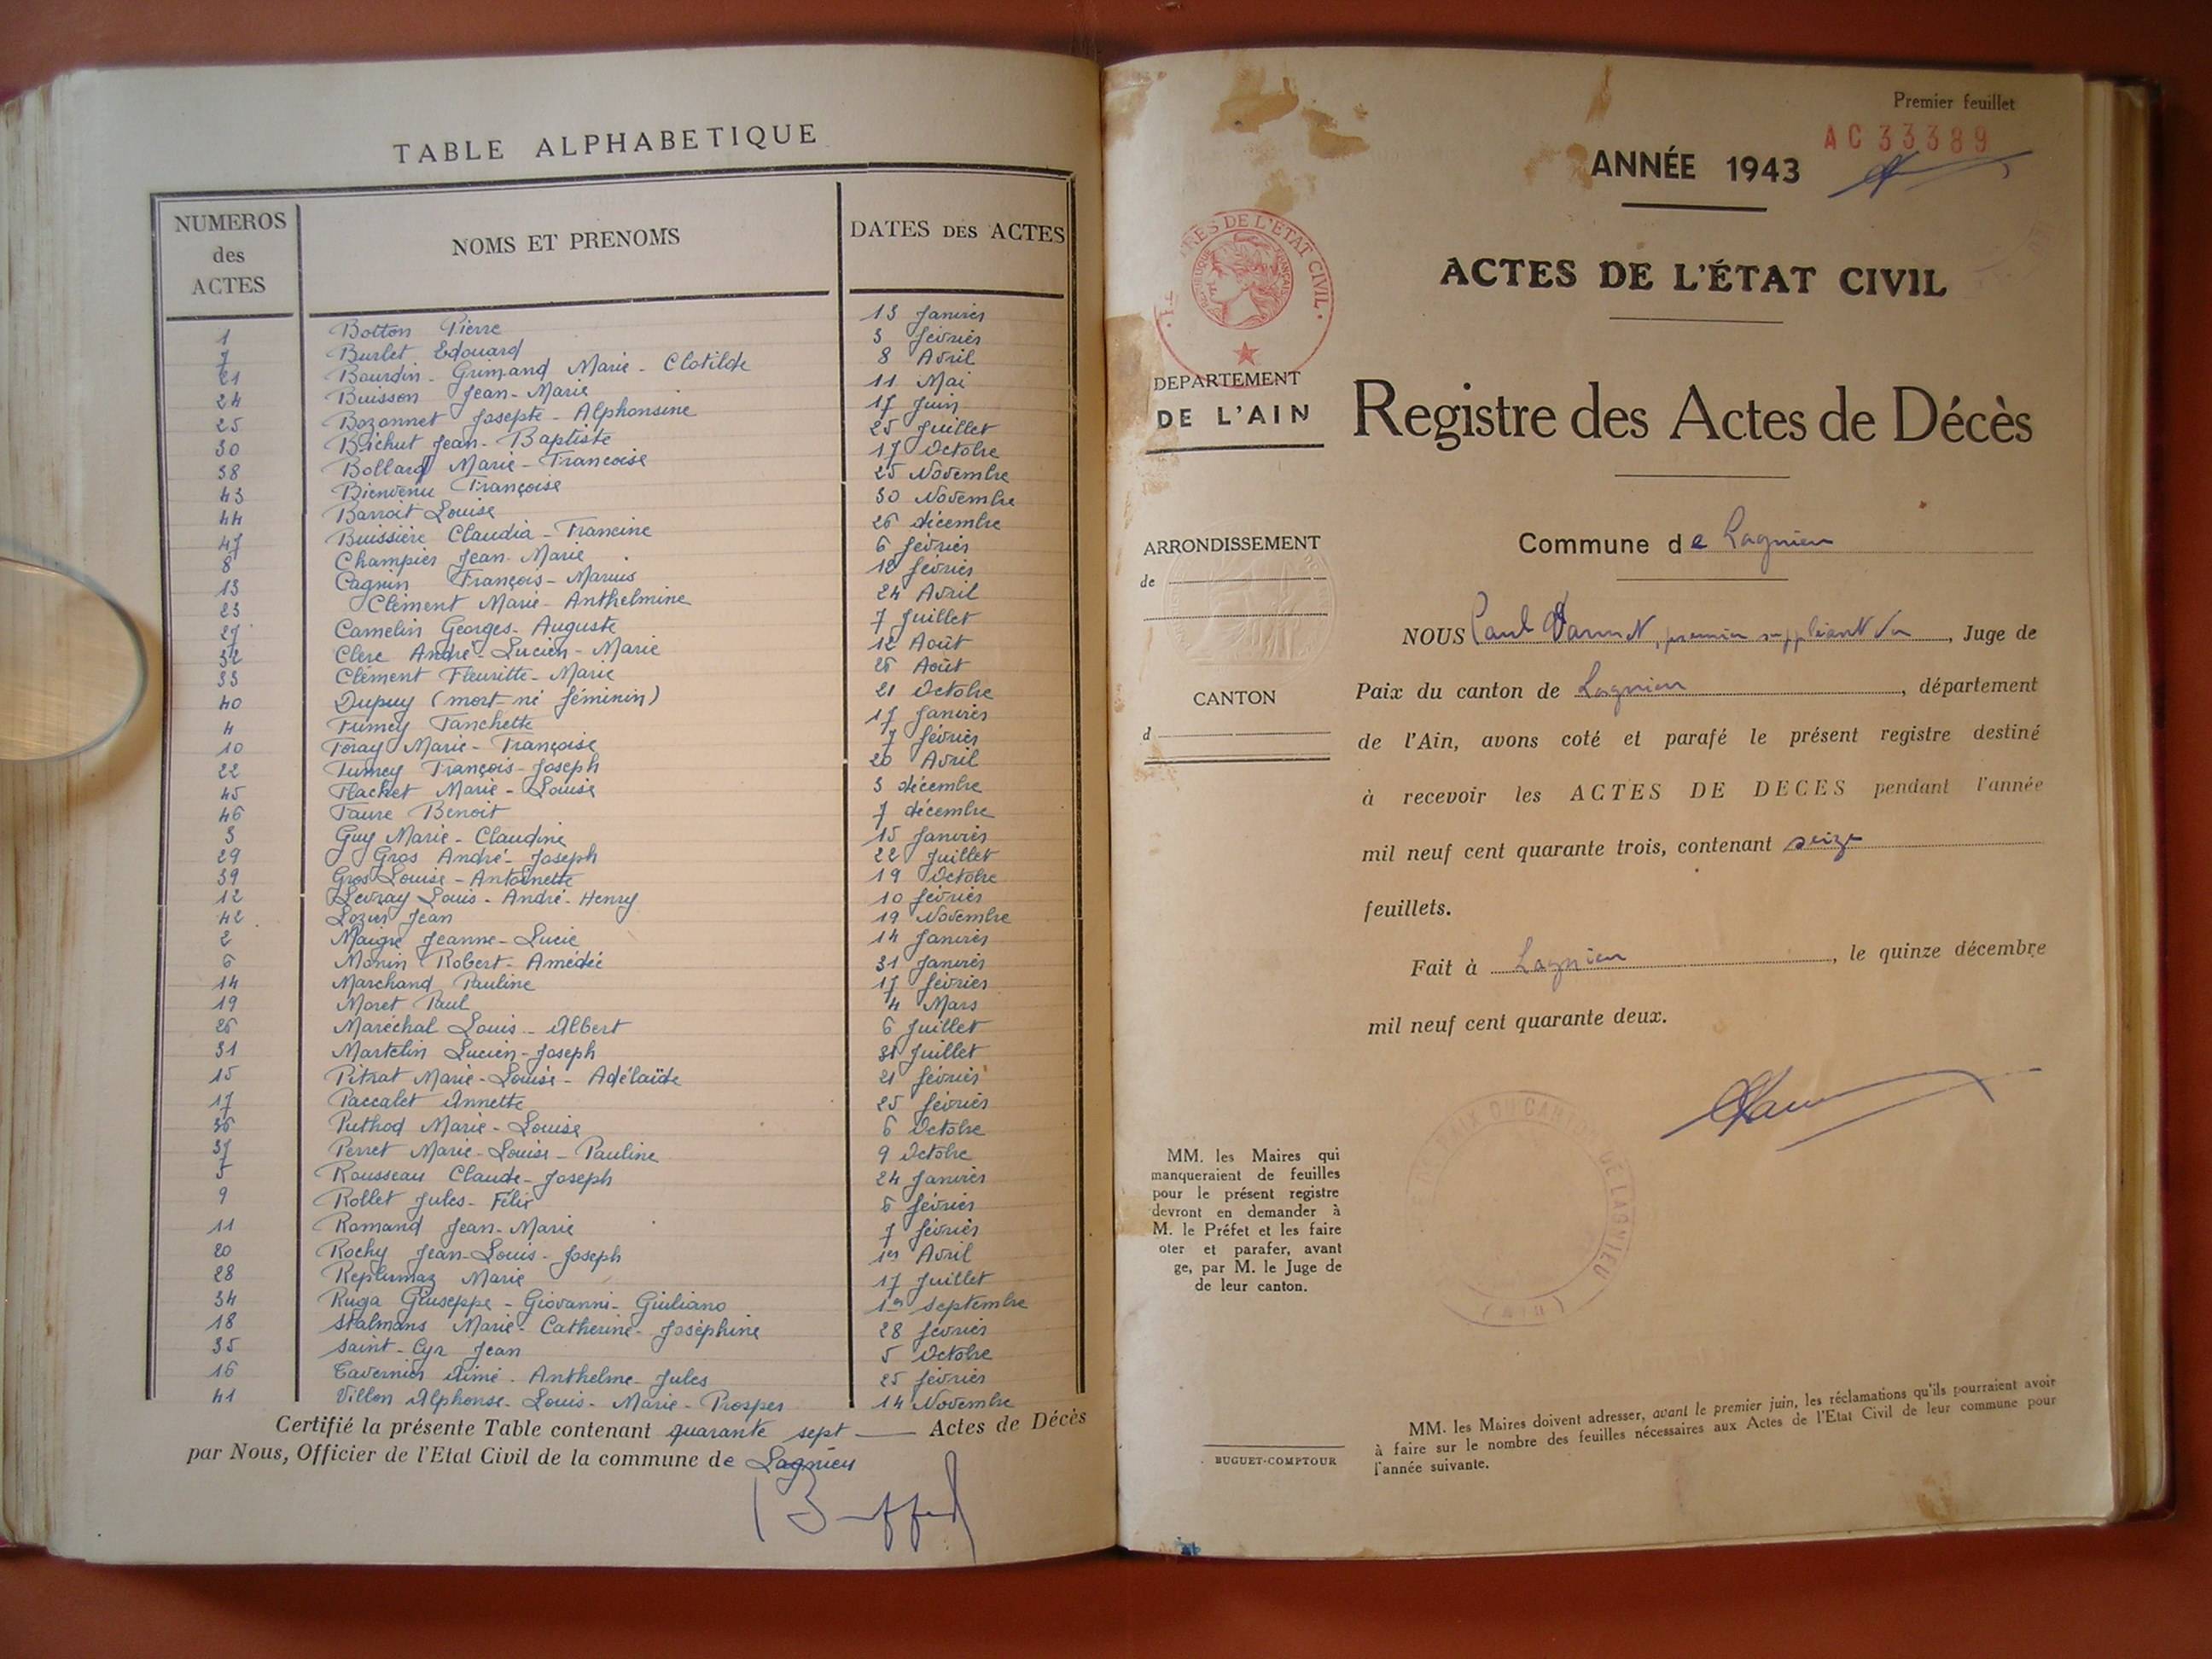 TABLE ALPHABETIQUE
NUMEROS des ACTES NOMS ET PRENOMS DATES DES ACTES
1 Botton Pierre 13 Janvier
7 Burlet Edouard 3 février
21 Bourdin - Grimand Marie - Clotilde 8 Avril
24 Buisson Jean-Marie 11 Mai
25 Bozonnet Josepte - Alphonsine 17 Juin
30 Bichut Jean-Baptiste 25 Juillet
38 Bollard Marie-Francoise 17 Octobre
43 Bienvenu Françoise 25 Novembre
44 Barroit Louise 30 Novembre
47 Buissière Claudia - Francine 26 décembre
8 Champier Jean-Marie 6 février
13 Cagnin François-Marius 12 février
23 Clément Marie-Anthelmine 24 Avril
27 Camelin Georges-Auguste 7 Juillet
32 Clerc André-Lucien-Marie 12 Août
33 Clément Fleuritte-Marie 26 Août
40 Dupuy (mort-né féminin) 21 Octobre
4 Fumey Fanchette 17 Janvier
10 Foray Marie-Françoise 7 février
22 Fumey François-Joseph 20 Avril
45 Flachet Marie-Louise 3 décembre
46 Faure Benoit 7 décembre
3 Guy Marie-Claudine 15 Janvier
29 Gros André-Joseph 22 Juillet
39 Gros Louise-Antoinette 19 Octobre
12 Levray Louis-André-Henry 10 février
42 Lozier Jean 19 Novembre
2 Maigre Jeanne-Lucie 14 Janvier
6 Monin Robert-Amédée 31 Janvier
14 Marchand Pauline 17 février
19 Moret Paul 4 Mars
26 Maréchal Louis-Albert 6 Juillet
31 Martelin Lucien-Joseph 31 Juillet
15 Pitrat Marie-Louise-Adélaïde 21 février
17 Paccalet Annette 25 février
36 Puthod Marie-Louise 6 Octobre
37 Perret Marie-Louise-Pauline 9 Octobre
5 Rousseau Claude-Joseph 24 Janvier
9 Rollet Jules-Félix 6 février
11 Romand Jean-Marie 7 février
20 Rochy Jean-Louis-Joseph 1er Avril
28 Replumaz Marie 17 Juillet
34 Ruga Giuseppe-Giovanni-Giuliano 1er Septembre
18 Stalmans Marie-Catherine-Joséphine 28 février
35 Saint-Cyr Jean 5 Octobre
16 Tavernier Aimé-Anthelme-Jules 25 février
41 Villon Alphonse-Louis-Marie-Prosper 14 Novembre
Certifié la présente Table contenant quarante sept Actes de Décès
par Nous, Officier de l'Etat Civil de la commune de Lagnieu
Premier feuillet
AC 33389
ANNÉE 1943
DE L'ÉTAT CIVIL
ACTES DE L'ÉTAT CIVIL
DEPARTEMENT
DE L'AIN
Registre des Actes de Décès
Commune de Lagnieu
ARRONDISSEMENT
de
CANTON
d
NOUS Paul , premier suppléant du, Juge de
Paix du canton de Lagnieu, département
de l'Ain, avons coté et parafé le présent registre destiné
à recevoir les ACTES DE DECES pendant l'année
mil neuf cent quarante trois, contenant seize
feuillets.
Fait à Lagnieu, le quinze décembre
mil neuf cent quarante deux.
PAIX DU CANTON DE LAGNIEU
(AIN)
MM. les Maires qui
manqueraient de feuilles
pour le présent registre
devront en demander à
M. le Préfet et les faire
oter et parafer, avant
ge, par M. le Juge de
de leur canton.
BUGUET-COMPTOUR
MM. les Maires doivent adresser, avant le premier juin, les réclamations qu'ils pourraient avoir
à faire sur le nombre des feuilles nécessaires aux Actes de l'Etat Civil de leur commune pour
l'année suivante.